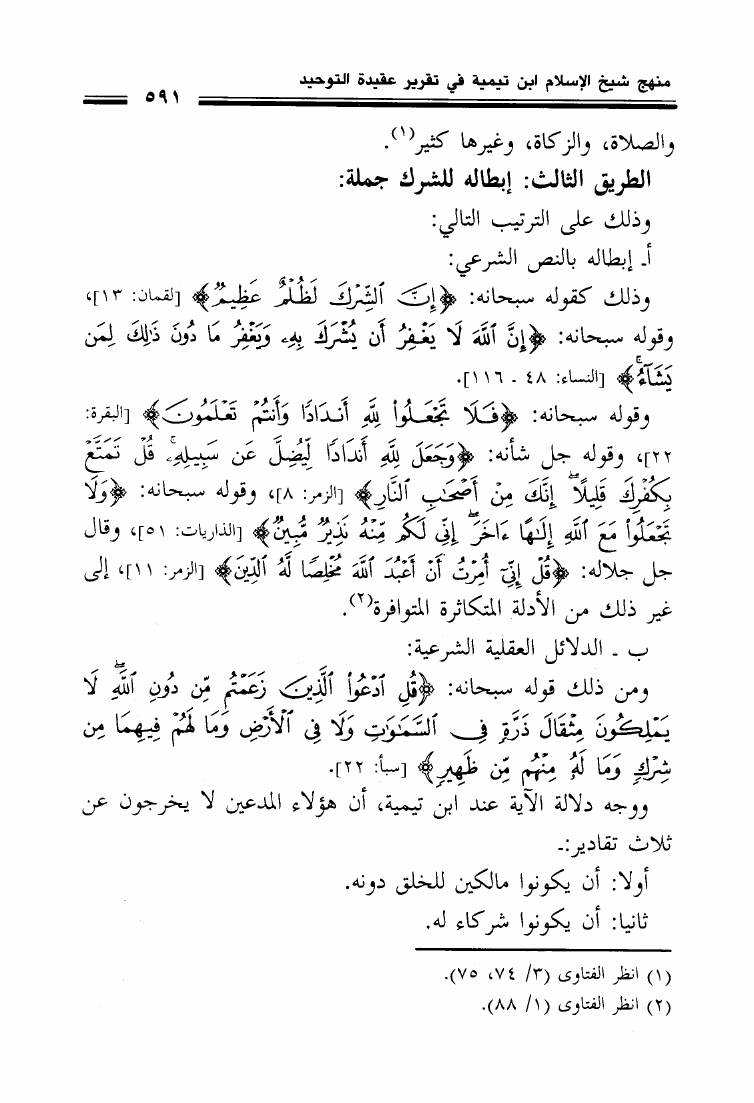 منهج شيخ الإسلام ابن تيمية في تقرير عقيدة التوحيد
٥٩١
والصلاة، والزكاة، وغيرها كثير(١).
الطريق الثالث: إبطاله للشرك جملة:
وذلك على الترتيب التالي:
أـ إبطاله بالنص الشرعي:
وذلك كقوله سبحانه: ﴿إِنَّ ٱلشِّرْكَ لَظُلْمٌ عَظِيمٌ﴾ [لقمان: ١٣]،
وقوله سبحانه: ﴿إِنَّ ٱللَّهَ لَا يَغْفِرُ أَن يُشْرَكَ بِهِۦ وَيَغْفِرُ مَا دُونَ ذَٰلِكَ لِمَن
يَشَآءُۚ﴾ [النساء: ٤٨ ـ ١١٦].
وقوله سبحانه: ﴿فَلَا تَجْعَلُوا۟ لِلَّهِ أَندَادًا وَأَنتُمْ تَعْلَمُونَ﴾ [البقرة:
٢٢]، وقوله جل شأنه: ﴿وَجَعَلَ لِلَّهِ أَندَادًا لِّيُضِلَّ عَن سَبِيلِهِۦۚ قُلْ تَمَتَّعْ
بِكُفْرِكَ قَلِيلًاۖ إِنَّكَ مِنْ أَصْحَٰبِ ٱلنَّارِ﴾ [الزمر: ٨]، وقوله سبحانه: ﴿وَلَا
تَجْعَلُوا۟ مَعَ ٱللَّهِ إِلَٰهًا ءَاخَرَۖ إِنِّى لَكُم مِّنْهُ نَذِيرٌ مُّبِينٌ﴾ [الذاريات: ٥١]، وقال
جل جلاله: ﴿قُلْ إِنِّىٓ أُمِرْتُ أَنْ أَعْبُدَ ٱللَّهَ مُخْلِصًا لَّهُ ٱلدِّينَ﴾ [الزمر: ١١]، إلى
غير ذلك من الأدلة المتكاثرة المتوافرة(٢).
ب ـ الدلائل العقلية الشرعية:
ومن ذلك قوله سبحانه: ﴿قُلِ ٱدْعُوا۟ ٱلَّذِينَ زَعَمْتُم مِّن دُونِ ٱللَّهِۖ لَا
يَمْلِكُونَ مِثْقَالَ ذَرَّةٍ فِى ٱلسَّمَٰوَٰتِ وَلَا فِى ٱلْأَرْضِ وَمَا لَهُمْ فِيهِمَا مِن
شِرْكٍ وَمَا لَهُۥ مِنْهُم مِّن ظَهِيرٍ﴾ [سبأ: ٢٢].
ووجه دلالة الآية عند ابن تيمية، أن هؤلاء المدعين لا يخرجون عن
ثلاث تقادير:ـ
أولا: أن يكونوا مالكين للخلق دونه.
ثانيا: أن يكونوا شركاء له.
(١) انظر الفتاوى (٣/ ٧٤، ٧٥).
(٢) انظر الفتاوى (١/ ٨٨).